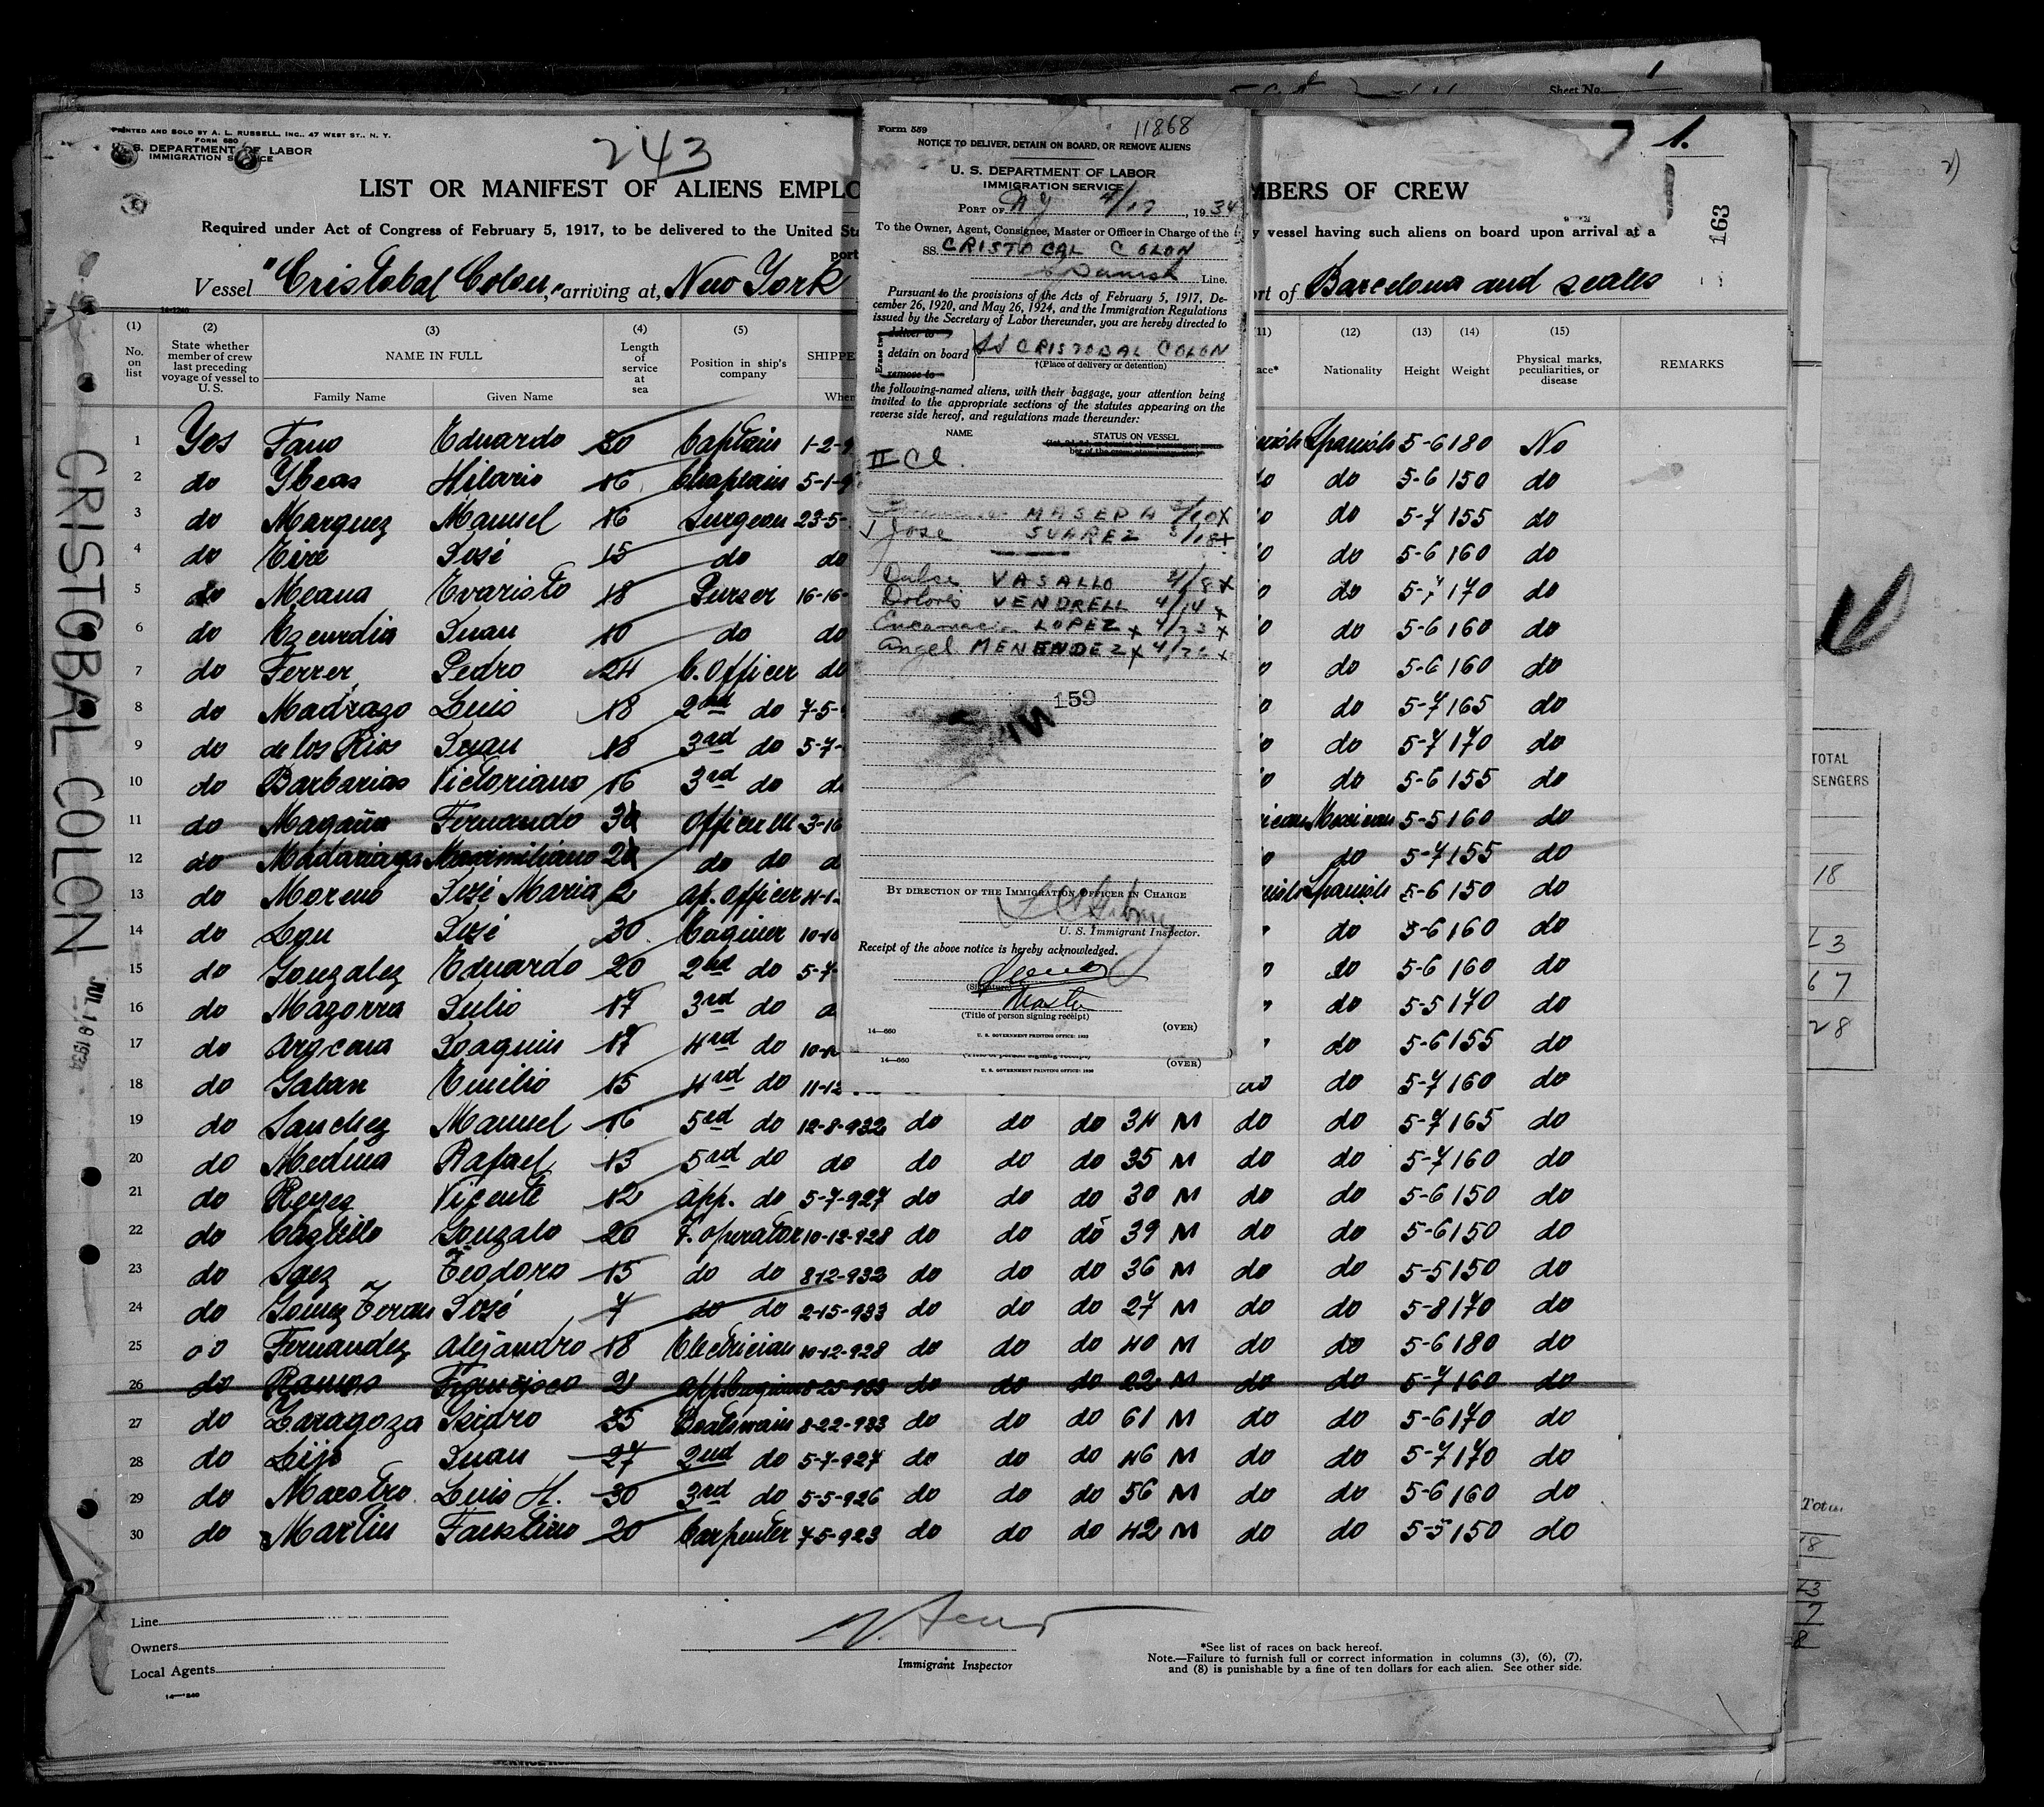 Sheet No. 1
PRINTED AND SOLD BY A. L. RUSSELL, INC., 47 WEST ST., N. Y.
FORM 680
U. S. DEPARTMENT OF LABOR
IMMIGRATION SERVICE
243
1.
163
LIST OR MANIFEST OF ALIENS EMPLO
MBERS OF CREW
Required under Act of Congress of February 5, 1917, to be delivered to the United Sta
y vessel having such aliens on board upon arrival at a
port
Vessel "Cristobal Colon," arriving at, New York
rt of Barcelona and scales
(1) (2) (3) (4) (5) (11) (12) (13) (14) (15)
No. on list
State whether member of crew last preceding voyage of vessel to U. S.
NAME IN FULL
Family Name Given Name
Length of service at sea
Position in ship's company
SHIPPE
Wher
ace* Nationality Height Weight
Physical marks, peculiarities, or disease
REMARKS
1 Yes Fano Eduardo 30 Captain 1-2-9 Spanish 5-6 180 No
2 do Ybeas Hilario 16 Chaplain 5-1-9 do do 5-6 150 do
3 do Marquez Manuel 16 Surgeon 23-5- do 5-7 155 do
4 do José 15 do do do 5-6 160 do
5 do Meana Evaristo 18 Purser 16-16- do 5-7 170 do
6 do Juan 10 do do do 5-6 160 do
7 do Ferrer Pedro 24 C. Officer do do 5-6 160 do
8 do Madrazo Luis 18 2nd do 7-5- do 5-7 165 do
9 do de los Rios Juan 18 3rd do 5-7- do 5-7 170 do
10 do Barberias Victoriano 16 3rd do do 5-6 155 do
11 do Magaña Fernando Officer M 3-16 Mexican 5-5 160 do
12 do Madariaga Maximiliano do do do 5-7 155 do
13 do Moreno José Maria 2 ap. officer 4-1- Spanish 5-6 150 do
14 do José 30 Enginer 10-10 do 5-6 160 do
15 do Gonzalez Eduardo 20 2nd do 5-7- do 5-6 160 do
16 do Mazorra Julio 17 3rd do do 5-5 170 do
17 do Joaquin 17 4rd do 10- do 5-6 155 do
18 do Galan Emilio 15 4rd do 11-12 do do 5-7 160 do
19 do Sanchez Manuel 16 5rd do 12-8-932 do do do 34 M do do 5-7 165 do
20 do Medina Rafael 13 5rd do do do do do 35 M do do 5-7 160 do
21 do Reyes Vicente 12 app. do 5-7-927 do do do 30 M do do 5-6 150 do
22 do Castillo Gonzalo 20 T. operator 10-12-928 do do do 39 M do do 5-6 150 do
23 do Saez Teodoro 15 do do 8-12-932 do do do 36 M do do 5-5 150 do
24 do Gomez Teran José 7 do do 2-15-933 do do do 27 M do do 5-8 170 do
25 do Fernandez Alejandro 18 Electrician 10-12-928 do do do 40 M do do 5-6 180 do
26 do Ramos Francisco 2 8-25-933 do do do 22 M do do 5-7 160 do
27 do Zaragoza Isidro 35 Boatswain 8-22-933 do do do 61 M do do 5-6 170 do
28 do Lijo Juan 27 2nd do 5-7-927 do do do 46 M do do 5-7 170 do
29 do Maestro Luis H. 30 3rd do 5-5-926 do do do 56 M do do 5-6 160 do
30 do Martin Faustino 20 Carpenter 7-5-923 do do do 42 M do do 5-5 150 do
Line
Owners
Local Agents
14—240
Immigrant Inspector
*See list of races on back hereof.
Note.—Failure to furnish full or correct information in columns (3), (6), (7),
and (8) is punishable by a fine of ten dollars for each alien. See other side.
CRISTOBAL COLON
JUL 18 1934
Form 559
11868
NOTICE TO DELIVER, DETAIN ON BOARD, OR REMOVE ALIENS
U. S. DEPARTMENT OF LABOR
IMMIGRATION SERVICE
PORT OF NY 4/17, 1934
To the Owner, Agent, Consignee, Master or Officer in Charge of the
SS. CRISTOBAL COLON
Spanish Line.
Pursuant to the provisions of the Acts of February 5, 1917, De-
cember 26, 1920, and May 26, 1924, and the Immigration Regulations
issued by the Secretary of Labor thereunder, you are hereby directed to
Erase two
deliver to
detain on board
remove to
SS CRISTOBAL COLON
†(Place of delivery or detention)
the following-named aliens, with their baggage, your attention being
invited to the appropriate sections of the statutes appearing on the
reverse side hereof, and regulations made thereunder:
NAME STATUS ON VESSEL
II Cl.
MASEDA
Jose SUAREZ
Dulce VASALLO 4/8 X
Dolores VENDRELL 4/14 X
Encarnacion LOPEZ X
Angel MENENDEZ X
159
BY DIRECTION OF THE IMMIGRATION OFFICER IN CHARGE
U. S. Immigrant Inspector.
Receipt of the above notice is hereby acknowledged.
(Signature)
Master
(Title of person signing receipt)
14—660 (OVER)
U. S. GOVERNMENT PRINTING OFFICE: 1933
14—660 (OVER)
TOTAL
SENGERS
18
67
28
Total
18